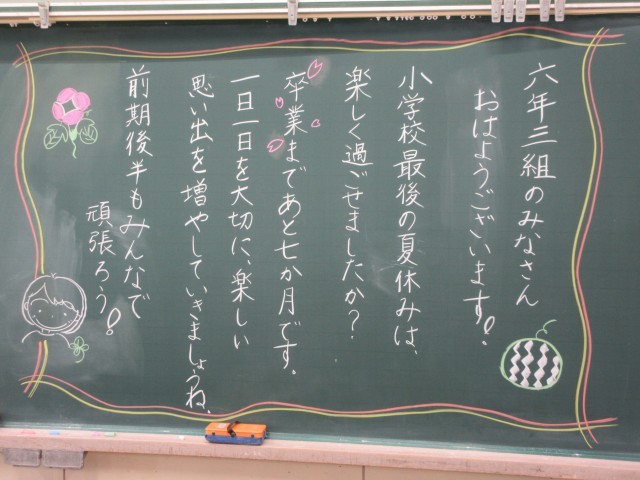 六年三組のみなさん
おはようございます!
小学校最後の夏休みは、
楽しく過ごせましたか?
卒業まであと七か月です。
一日一日を大切に、楽しい
思い出を増やしていきましょうね、
前期後半もみんなで
頑張ろう!